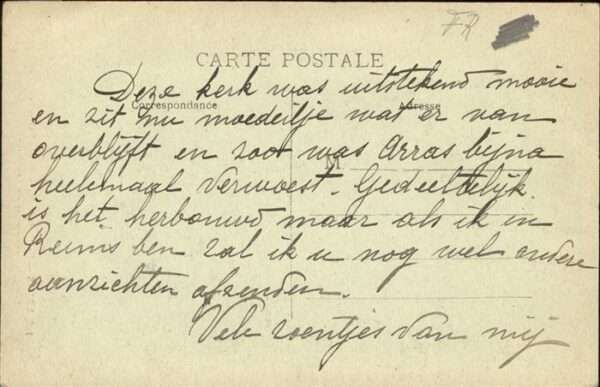 FR
CARTE POSTALE
Deze kerk was uitstekend mooie
Correspondance
Adresse
en zit nu moedertje wat er van
overblijft en zoo was Arras bijna
M
heelemaal verwoest. Gedeeltelijk
is het herbouwd maar als ik in
Reims ben zal ik u nog wel andere
aanzichten afzenden.
Vele zoentjes van mij